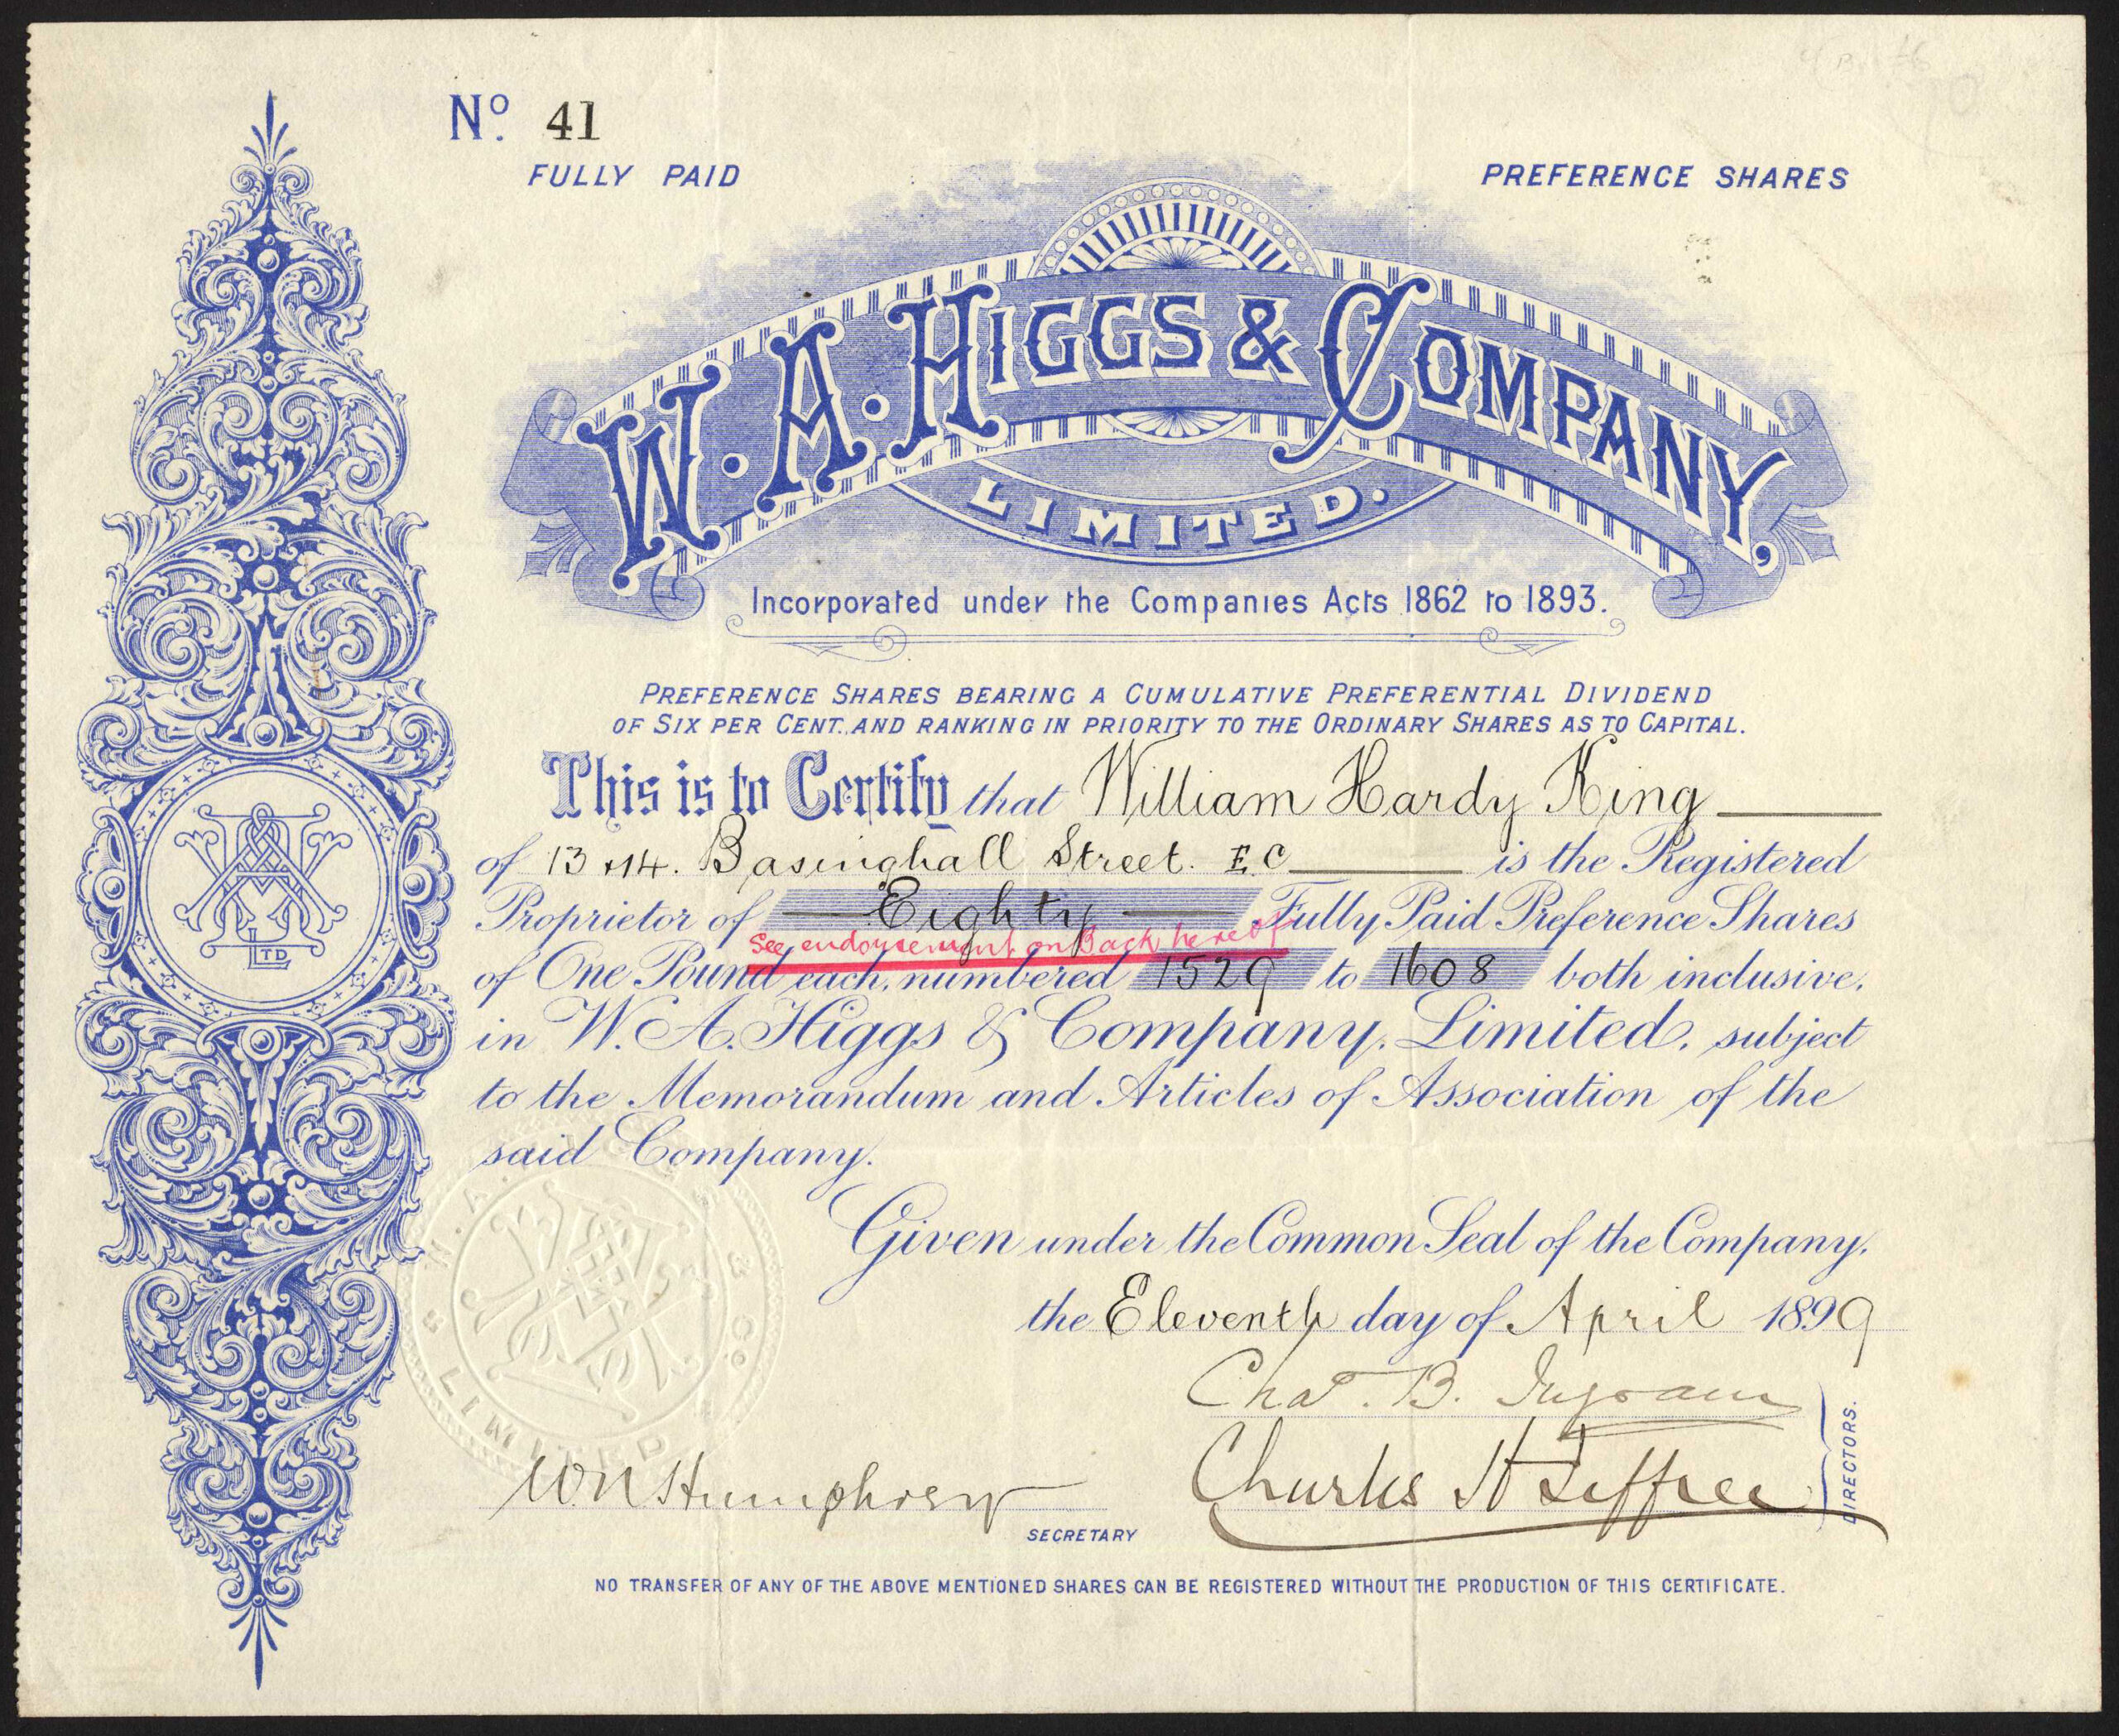 Nº 41
FULLY PAID
PREFERENCE SHARES
W. A. HIGGS & COMPANY,
LIMITED.
Incorporated under the Companies Acts 1862 to 1893.
PREFERENCE SHARES BEARING A CUMULATIVE PREFERENTIAL DIVIDEND
OF SIX PER CENT. AND RANKING IN PRIORITY TO THE ORDINARY SHARES AS TO CAPITAL.
This is to Certify that William Hardy King
of 13 & 14. Basinghall Street. E.C. is the Registered
Proprietor of Eighty Fully Paid Preference Shares
See endorsement on Back hereof
of One Pound each, numbered 1529 to 1608 both inclusive,
in W. A. Higgs & Company, Limited, subject
to the Memorandum and Articles of Association of the
said Company.
Given under the Common Seal of the Company,
the Eleventh day of April 1899
Chas. B. Ingram
Charles H Jeffree
DIRECTORS.
W N Humphrey
SECRETARY
NO TRANSFER OF ANY OF THE ABOVE MENTIONED SHARES CAN BE REGISTERED WITHOUT THE PRODUCTION OF THIS CERTIFICATE.
LTD
W. A. HIGGS & CO. LIMITED